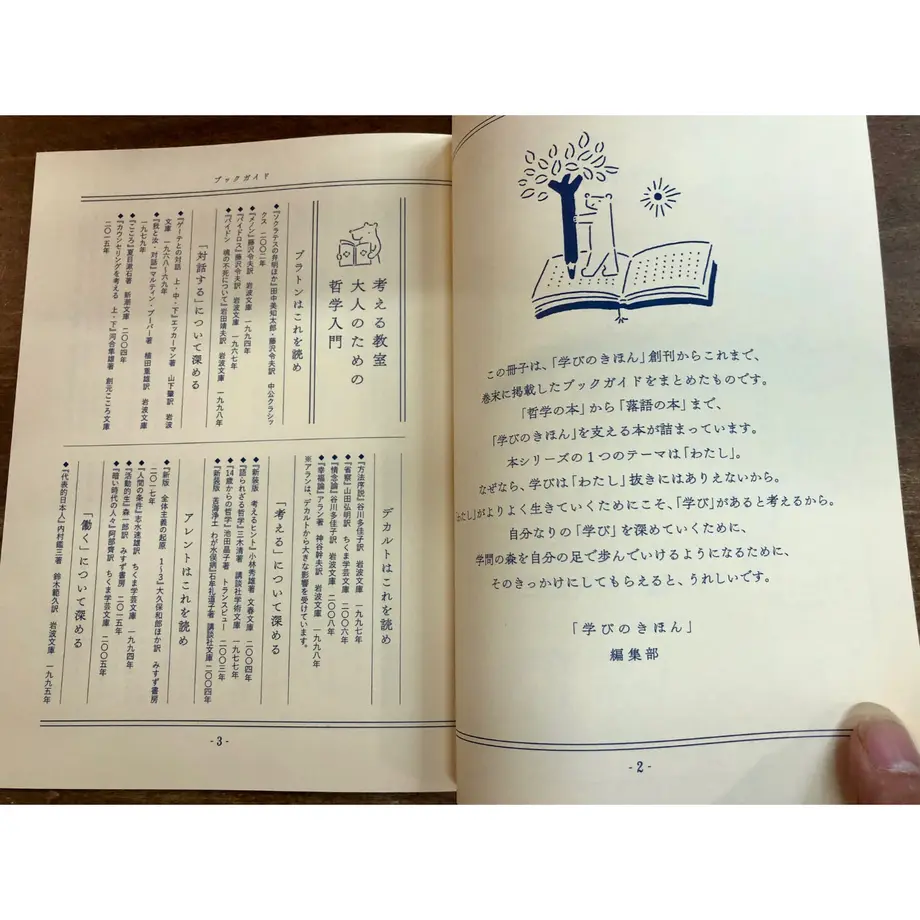 この冊子は、「学びのきほん」創刊からこれまで、
巻末に掲載したブックガイドをまとめたものです。
「哲学の本」から「落語の本」まで、
「学びのきほん」を支える本が詰まっています。
本シリーズの1つのテーマは「わたし」。
なぜなら、学びは「わたし」抜きにはありえないから。
「わたし」がよりよく生きていくためにこそ、「学び」があると考えるから。
自分なりの「学び」を深めていくために、
学問の森を自分の足で歩んでいけるようになるために、
そのきっかけにしてもらえると、うれしいです。
「学びのきほん」
編集部
- 2 -
ブックガイド
考える教室
大人のための
哲学入門
プラトンはこれを読め
◆『ソクラテスの弁明ほか』田中美知太郎・藤沢令夫訳 中公クラシッ
クス 二〇〇二年
◆『メノン』藤沢令夫訳 岩波文庫 一九九四年
◆『パイドロス』藤沢令夫訳 岩波文庫 一九六七年
◆『パイドン 魂の不死について』岩田靖夫訳 岩波文庫 一九九八年
「対話する」について深める
◆『ゲーテとの対話 上・中・下』エッカーマン著 山下肇訳 岩波
文庫 一九六八~六九年
◆『我と汝・対話』マルティン・ブーバー著 植田重雄訳 岩波文庫
一九七九年
◆『こころ』夏目漱石著 新潮文庫 二〇〇四年
◆『カウンセリングを考える 上・下』河合隼雄著 創元こころ文庫
二〇一五年
デカルトはこれを読め
◆『方法序説』谷川多佳子訳 岩波文庫 一九九七年
◆『省察』山田弘明訳 ちくま学芸文庫 二〇〇六年
◆『情念論』谷川多佳子訳 岩波文庫 二〇〇八年
◆『幸福論』アラン著 神谷幹夫訳 岩波文庫 一九九八年
※アランは、デカルトから大きな影響を受けています。
「考える」について深める
◆『新装版 考えるヒント』小林秀雄著 文春文庫 二〇〇四年
◆『語られざる哲学』三木清著 講談社学術文庫 一九七七年
◆『14歳からの哲学』池田晶子著 トランスビュー 二〇〇三年
◆『新装版 苦海浄土 わが水俣病』石牟礼道子著 講談社文庫 二〇〇四年
アレントはこれを読め
◆『新版 全体主義の起原 1~3』大久保和郎ほか訳 みすず書房
二〇一七年
◆『人間の条件』志水速雄訳 ちくま学芸文庫 一九九四年
◆『活動的生』森一郎訳 みすず書房 二〇一五年
◆『暗い時代の人々』阿部齊訳 ちくま学芸文庫 二〇〇五年
「働く」について深める
◆『代表的日本人』内村鑑三著 鈴木範久訳 岩波文庫 一九九五年
- 3 -